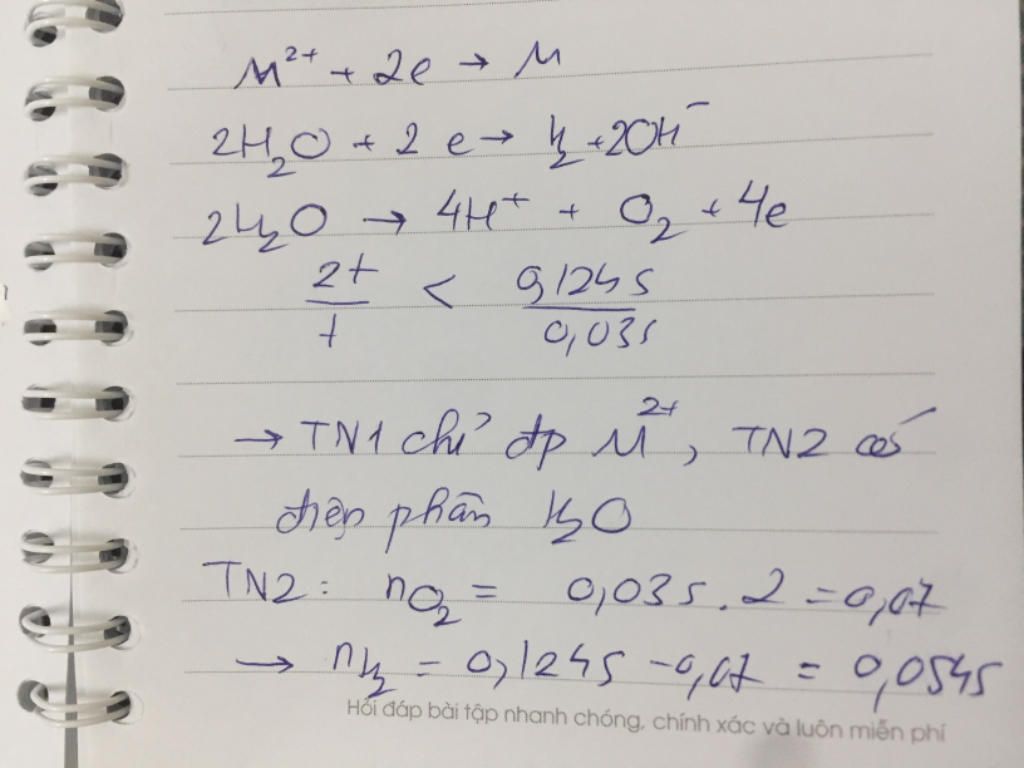 M²⁺ + 2e → M
2H₂O + 2e → H₂ + 2OH⁻
2H₂O → 4H⁺ + O₂ + 4e
2t/t < 0,1245/0,035
→ TN1 chỉ đp M²⁺, TN2 có
điện phân H₂O
TN2: nO₂ = 0,035.2 = 0,07
→ nH₂ = 0,1245 - 0,07 = 0,0545
Hỏi đáp bài tập nhanh chóng, chính xác và luôn miễn phí